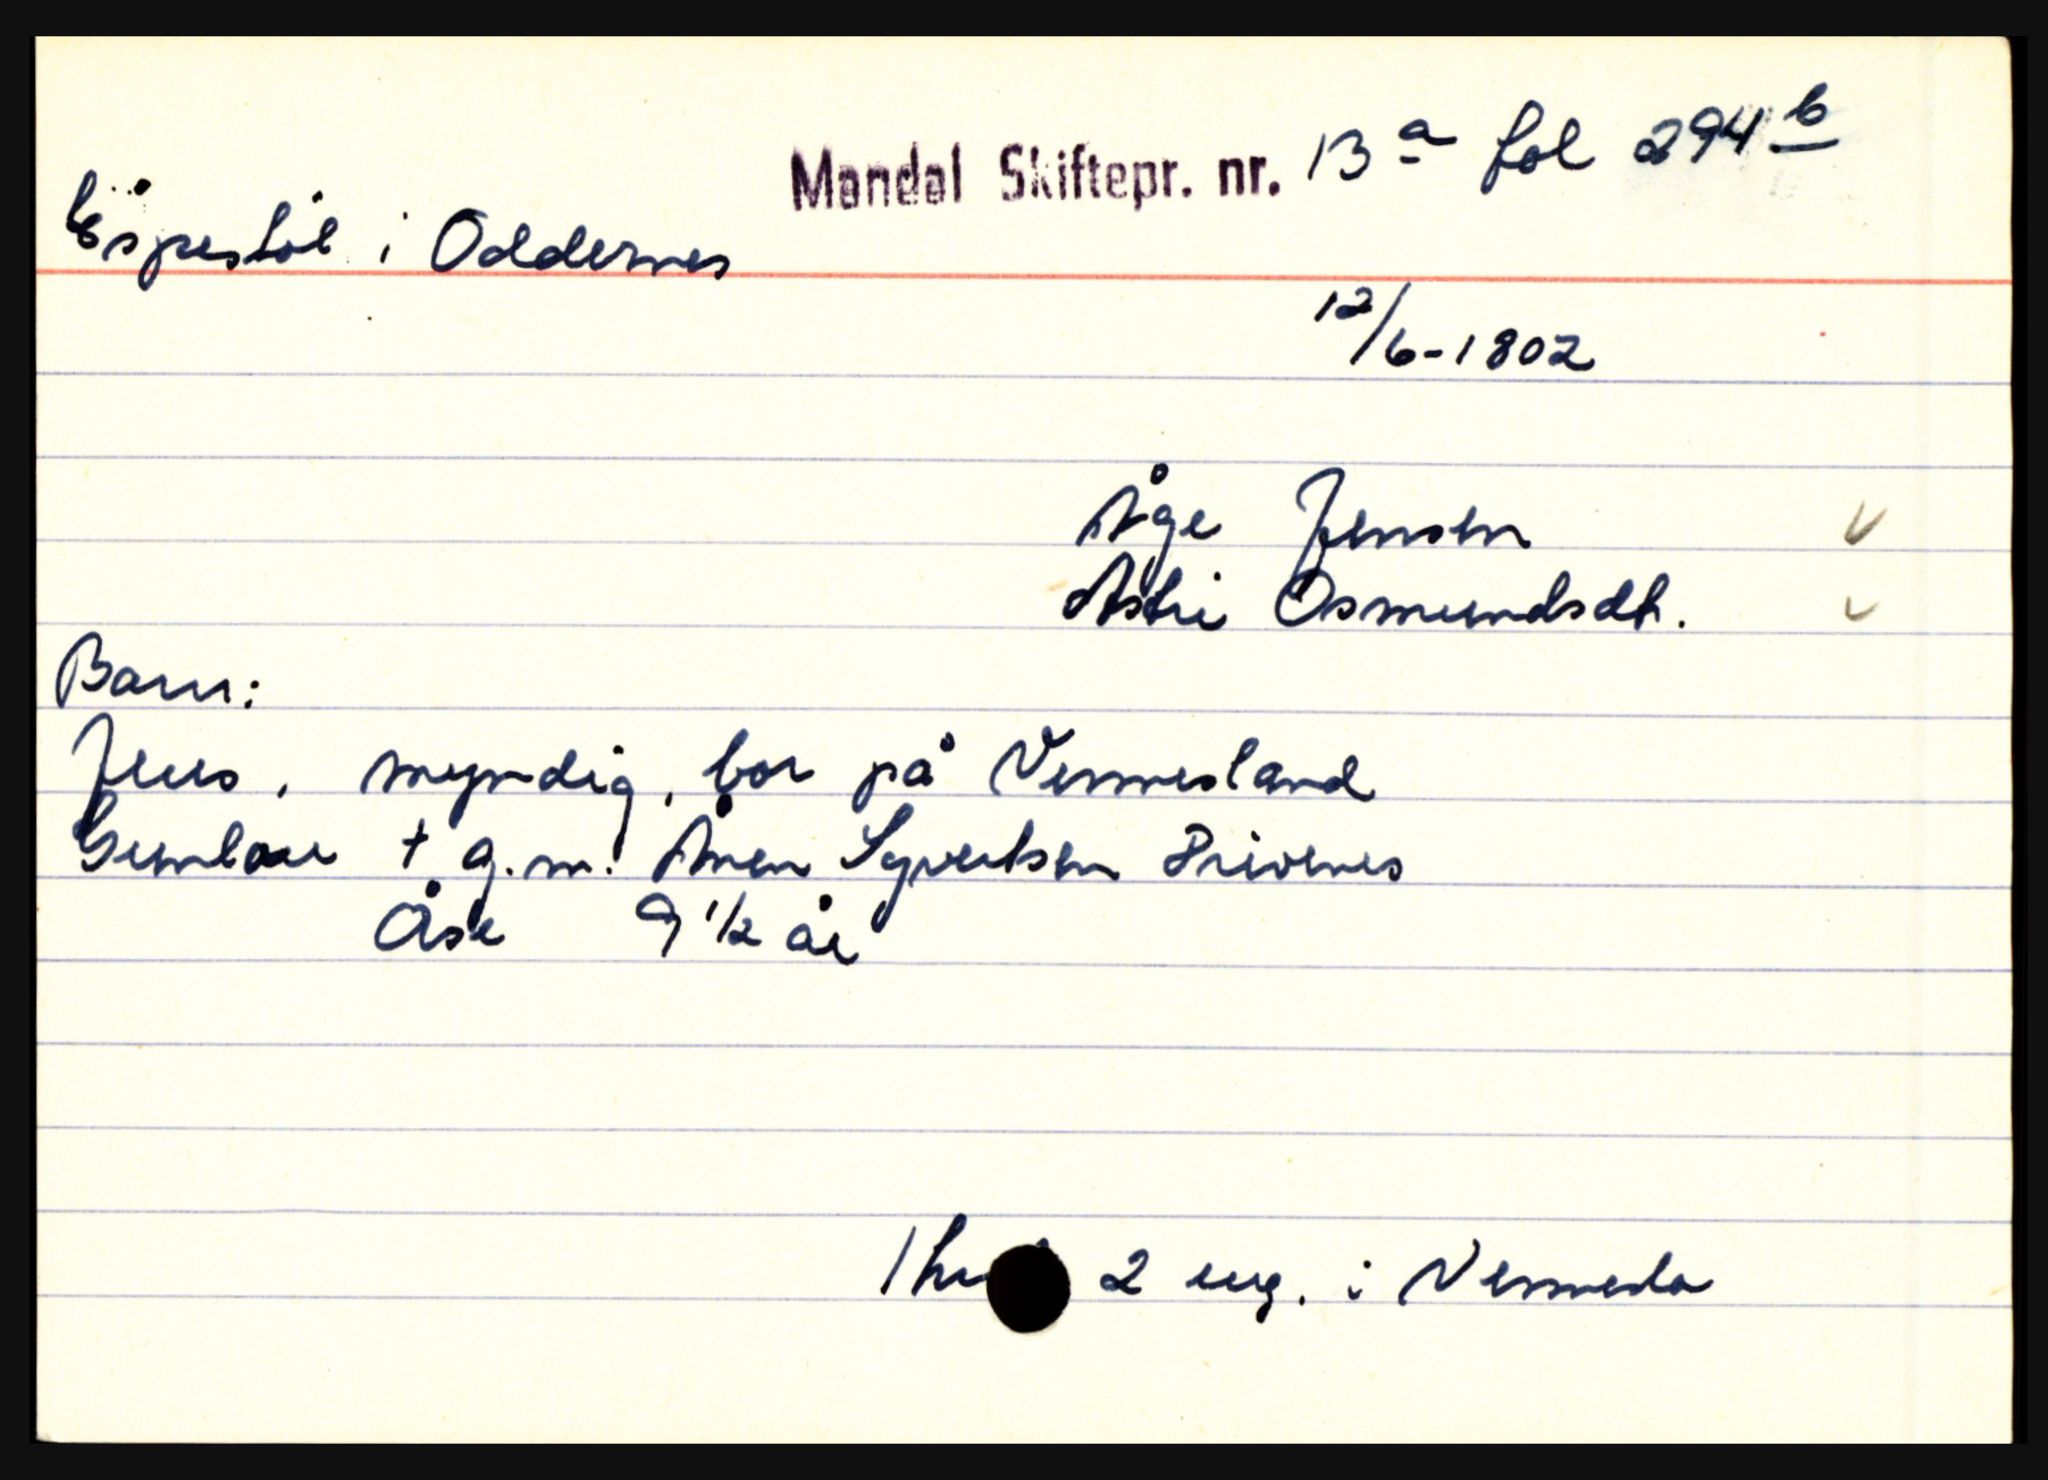 Mandal Skiftepr. nr. 13 a fol 294 b
Espestöl i Oddernes
12/6-1802
Åge Jensen
Astri Osmundsdt.
Barn:
Jens, myndig, bor på Vennesland
Gunlaue † g.m. Ånen Syvertsen Drivenes
Åse 9 1/2 år
1 hu 2 eng. i Vennesla